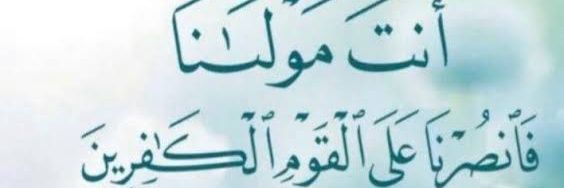 أَنتَ مَوْلَىٰنَا
فَٱنصُرْنَا عَلَى ٱلْقَوْمِ ٱلْكَـٰفِرِينَ